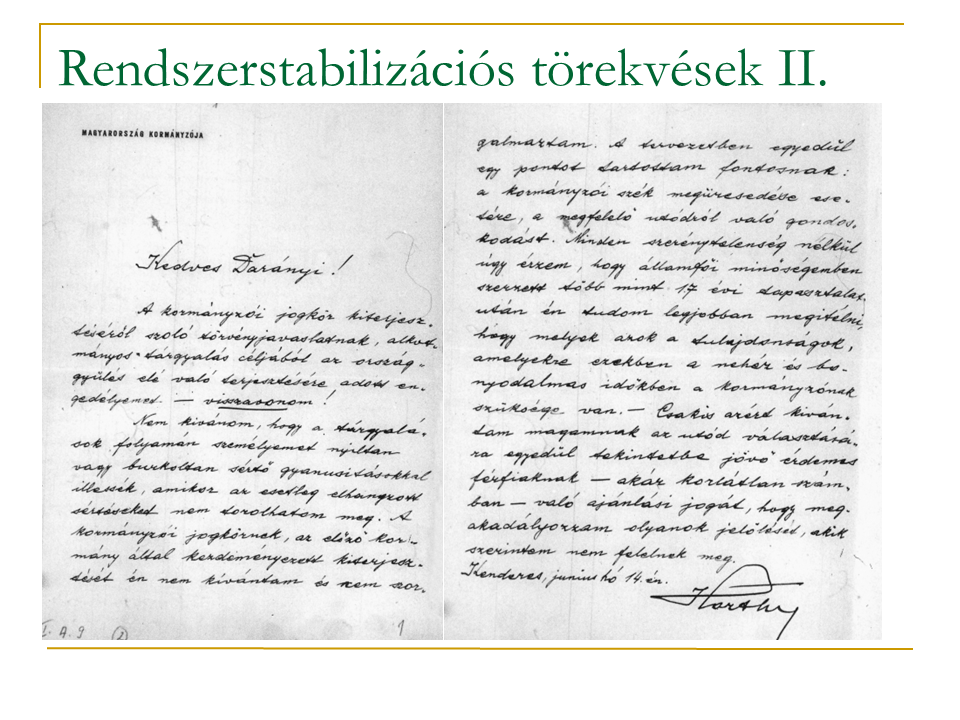 Rendszerstabilizációs törekvések II.
MAGYARORSZÁG KORMÁNYZÓJA
Kedves Darányi!
A kormányzói jogkör kiterjesz-
téséről szoló törvényjavaslatnak, alkot-
mányos tárgyalás céljából az ország-
gyülés elé való terjesztésére adott en-
gedélyemet — visszavonom!
Nem kivánom, hogy a tárgyalá-
sok folyamán személyemet nyiltan
vagy burkoltan sértő gyanusitásokkal
illessék, amikor az esetleg elhangzott
sértéseket nem torolhatom meg. A
kormányzói jogkörnek, az előző kor-
mány által kezdeményezett kiterjesz-
tését én nem kívántam és nem szor-
I. A. 9
2
1
galmaztam. A tervezetben egyedül
egy pontot tartottam fontosnak:
a kormányzói szék megüresedése ese-
tére, a megfelelő utódról való gondos-
kodást. Minden szerénytelenség nélkül
úgy érzem, hogy államfői minőségemben
szerzett több mint 17 évi tapasztalat
után én tudom legjobban megitélni,
hogy melyek azok a tulajdonságok,
amelyekre ezekben a nehéz és bo-
nyodalmas időkben a kormányzónak
szüksége van. — Csakis azért kiván-
tam magamnak az utód választásá-
ra egyedül tekintetbe jövő érdemes
férfiaknak — akár korlátlan szám-
ban — való ajánlási jogát, hogy meg-
akadályozzam olyanok jelölését, akik
szerintem nem felelnek meg.
Kenderes, junius hó 14.én.
Horthy